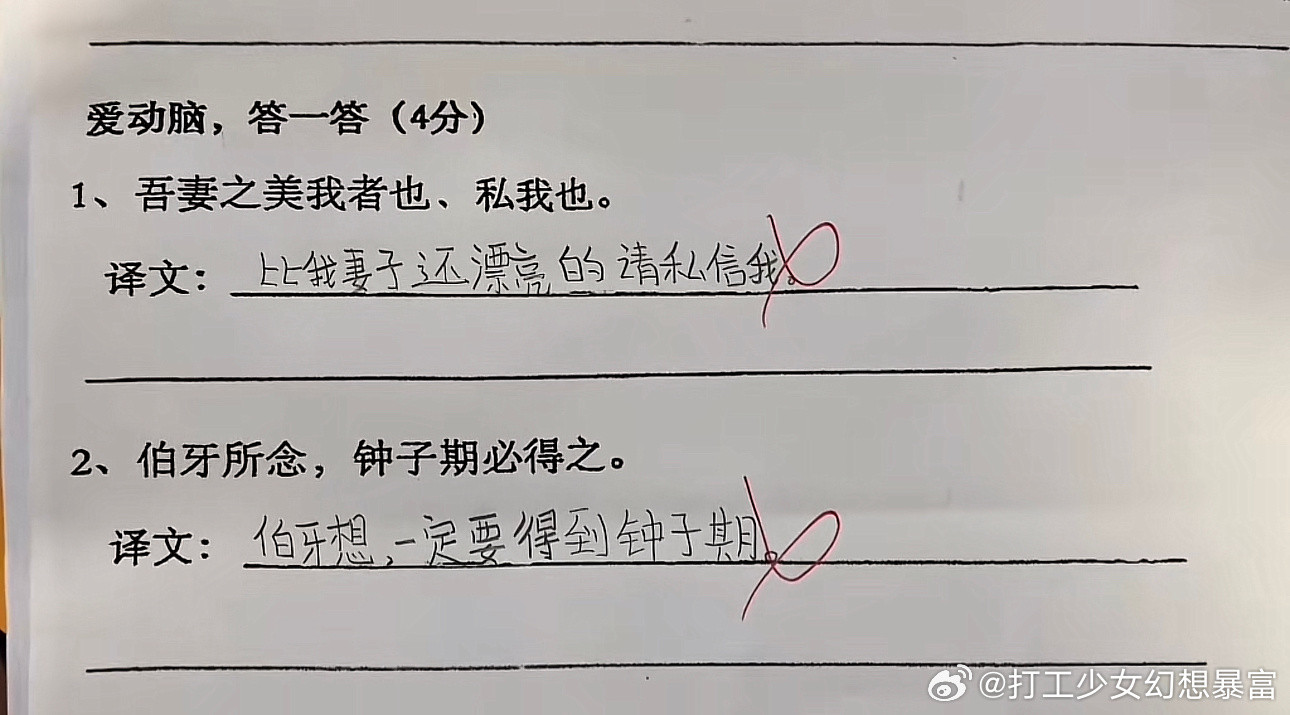 爱动脑，答一答（4分）
1、吾妻之美我者也、私我也。
译文：比我妻子还漂亮的请私信我。
2、伯牙所念，钟子期必得之。
译文：伯牙想，一定要得到钟子期。
@打工少女幻想暴富